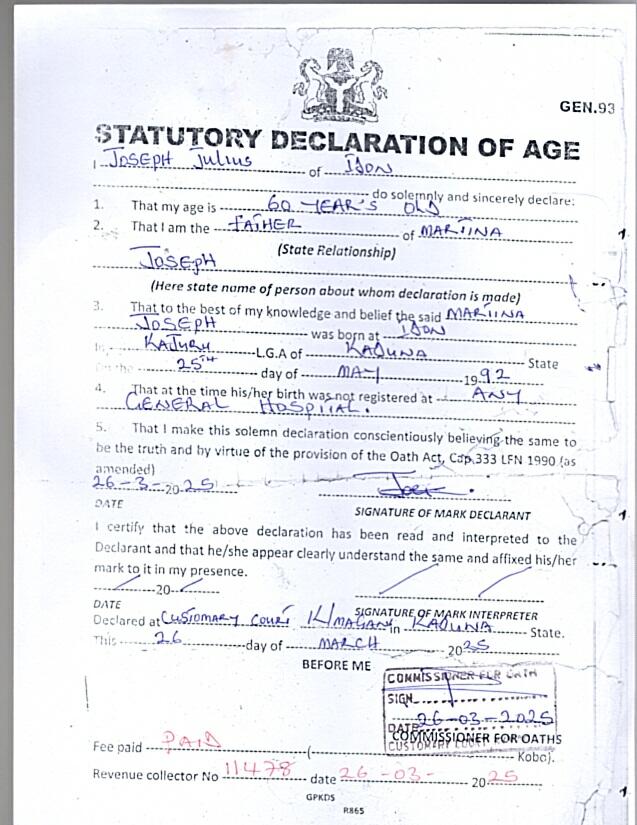 GEN.93
STATUTORY DECLARATION OF AGE
I JOSEPH Julius of IDON
do solemnly and sincerely declare:
1. That my age is 60 YEAR'S OLD
2. That I am the FATHER of MARIINA
(State Relationship)
JOSEPH
(Here state name of person about whom declaration is made)
3. That to the best of my knowledge and belief the said MARIINA
JOSEPH was born at IDON
In KAJURU L.G.A of KADUNA State
On the 25TH day of MAY 1992
4. That at the time his/her birth was not registered at ANY
GENERAL HOSPITAL.
5. That I make this solemn declaration conscientiously believing the same to
be the truth and by virtue of the provision of the Oath Act, Cap.333 LFN 1990 (as
amended)
26-3-2025
DATE
SIGNATURE OF MARK DECLARANT
I certify that the above declaration has been read and interpreted to the
Declarant and that he/she appear clearly understand the same and affixed his/her
mark to it in my presence.
20
DATE
SIGNATURE OF MARK INTERPRETER
Declared at CUSTOMARY COURT K/MAGANI in KADUNA State.
This 26 day of MARCH 2025
BEFORE ME
COMMISSIONER FOR OATH
SIGN
DATE 26-03-2025
COMMISSIONER FOR OATHS
CUSTOMARY COURT
Fee paid PAID ( Kobo).
Revenue collector No 11478 date 26-03-2025
GPKDS
R865